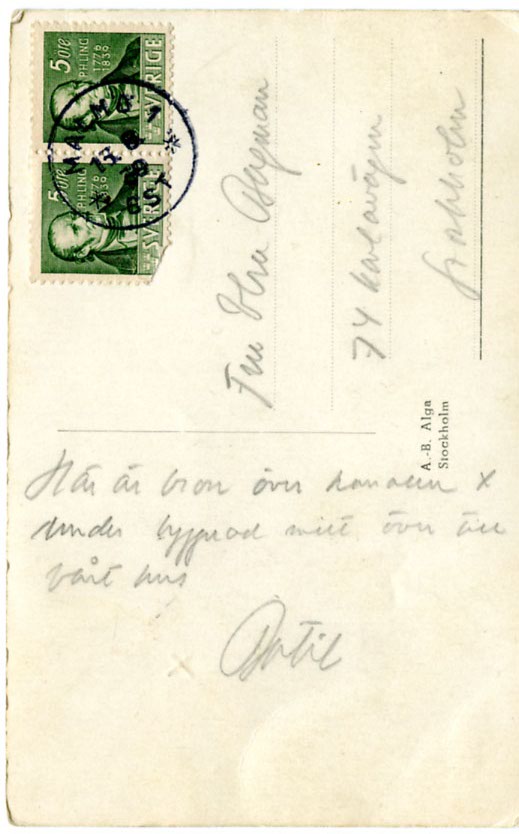 5 öre
PH LING
1776
1839
SVERIGE
5 öre
PH LING
1776
1839
SVERIGE
MALMÖ 1
Fru Elsa Bergman
74 Karlavägen
Stockholm
A.-B. Alga
Stockholm
Här är bron över kanalen x
under byggnad mitt över är
vårt hus
Bertil